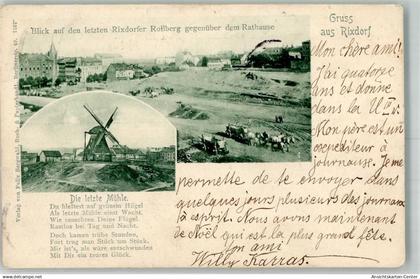 Blick auf den letzten Rixdorfer Roßberg gegenüber dem Rathause
Gruss
aus Rixdorf
Die letzte Mühle.
Du bliebst auf grünem Hügel
Als letzte Mühle einst Wacht,
Wie rauschten Deine Flügel
Rastlos bei Tag und Nacht.
Doch kamen trübe Stunden,
Fort trug man Stück um Stück.
Mir ist's, als wäre entschwunden
Mit Dir ein teures Glück.
Mon chère ami!
J'ai quatorze
ans et donne
dans la U
Mon père est un
expediteur à
journause. Je me
permette de te envoyer dans
quelques jours plusieurs des journaux
à esprit. Nous avons maintenant
de Noël qui est la plus grand fête.
Mon ami
Willy Karras.
www.Ansichtskarten-Center.de